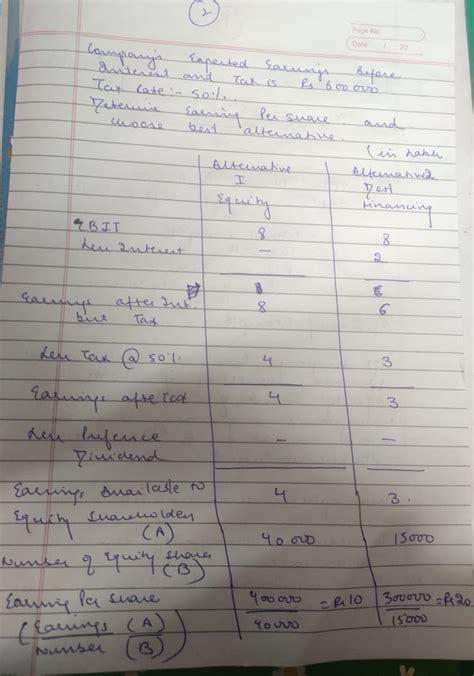 2
Page No.
Date / / 20
Company's Expected Earnings Before
Interest and Tax is Rs 800000
Tax Rate:- 50%.
Determine Earning Per Share and
choose best alternative.
(in Lakh
Alternative I Equity
Alternative 2 Dest Financing
EBIT 8 8
Less Interest - 2
8 6
Earnings after Int. but Tax 8 6
Less Tax @ 50%. 4 3
Earnings after Tax 4 3
Less Prefence Dividend - -
Earnings Available to 4 3.
Equity Shareholders
(A) 40000 15000
Number of Equity Share
(B)
Earning Per Share 400000 = Rs 10 300000 = Rs 20
(Earnings (A) 40000 15000
Number (B))